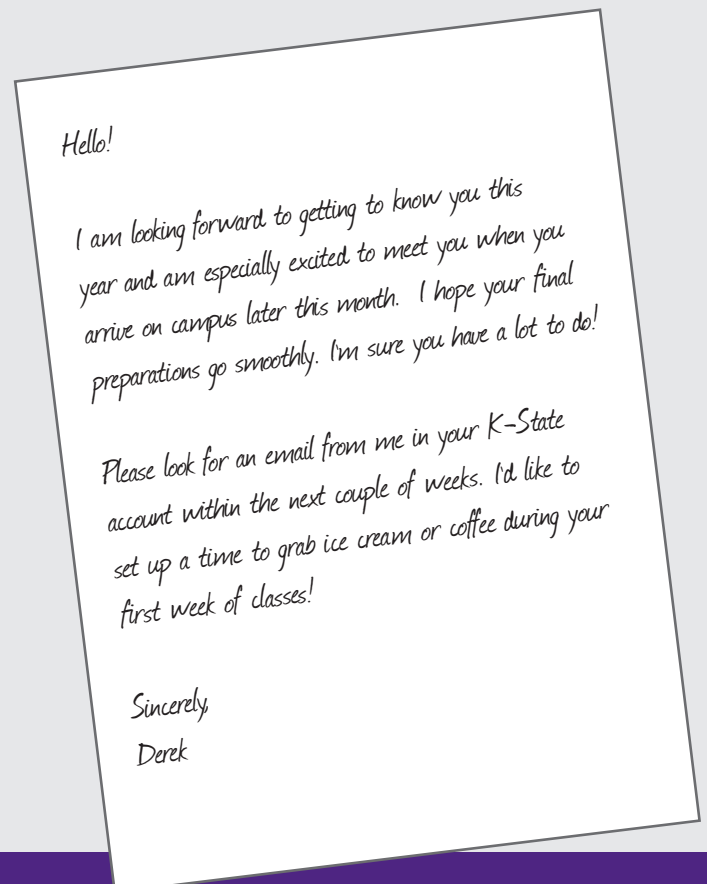 Hello!
I am looking forward to getting to know you this
year and am especially excited to meet you when you
arrive on campus later this month.  I hope your final
preparations go smoothly. I'm sure you have a lot to do!
Please look for an email from me in your K-State
account within the next couple of weeks. I'd like to
set up a time to grab ice cream or coffee during your
first week of classes!
Sincerely,
Derek